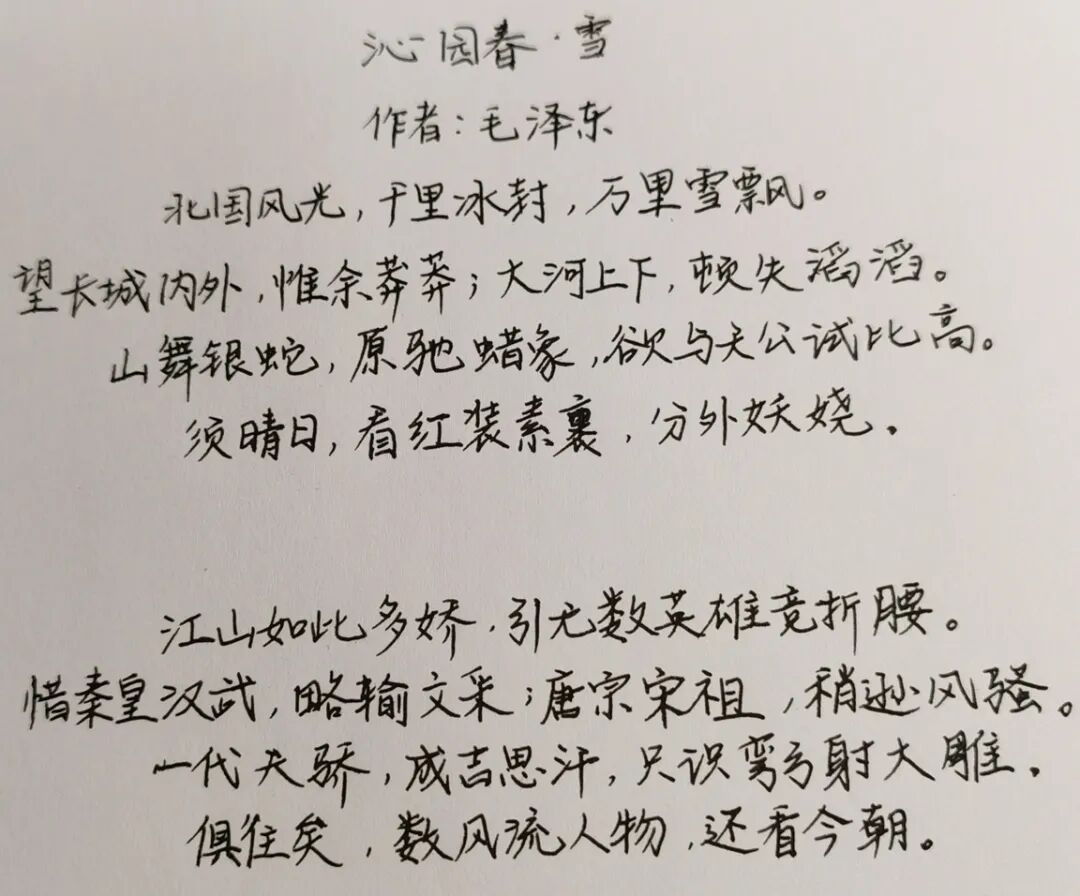 沁园春·雪
作者：毛泽东
北国风光，千里冰封，万里雪飘。
望长城内外，惟余莽莽；大河上下，顿失滔滔。
山舞银蛇，原驰蜡象，欲与天公试比高。
须晴日，看红装素裹，分外妖娆。
江山如此多娇，引无数英雄竞折腰。
惜秦皇汉武，略输文采；唐宗宋祖，稍逊风骚。
一代天骄，成吉思汗，只识弯弓射大雕。
俱往矣，数风流人物，还看今朝。